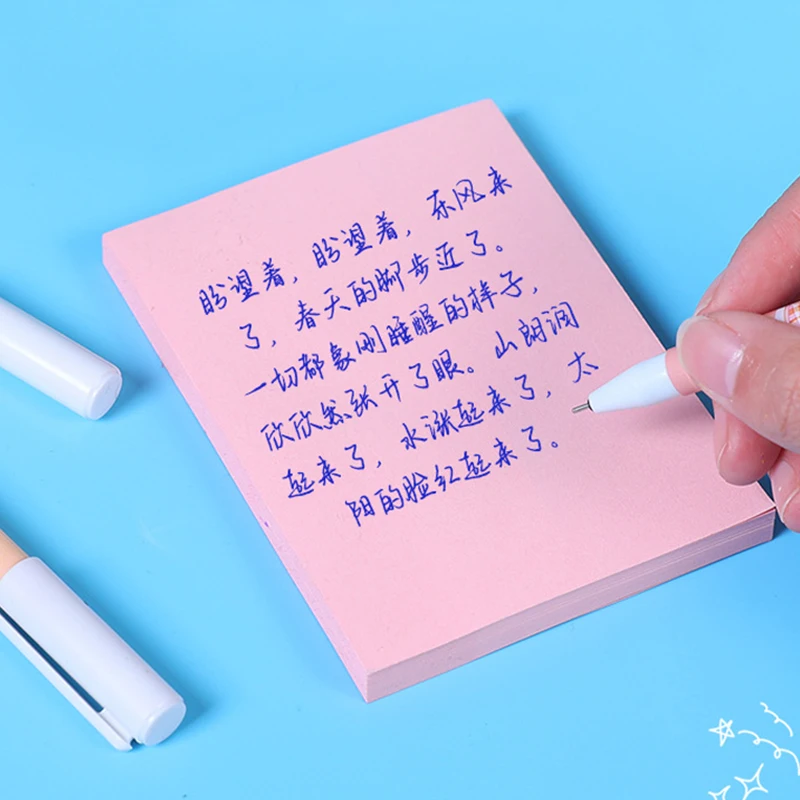 盼望着，盼望着，东风来
了，春天的脚步近了。
一切都象刚睡醒的样子，
欣欣然张开了眼。山朗润
起来了，水涨起来了，太
阳的脸红起来了。